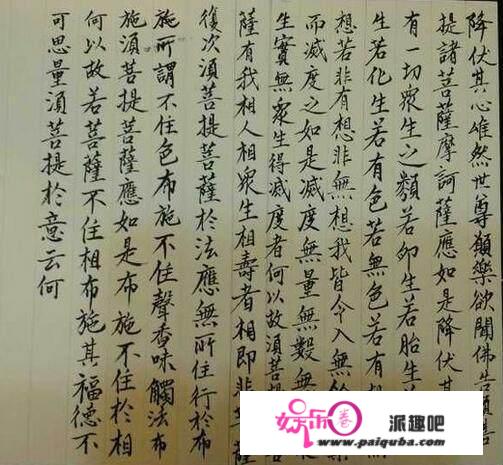 降伏其心唯然世尊願樂欲聞佛告須菩
提諸菩薩摩訶薩應如是降伏其
有一切眾生之類若卵生若胎生若
生若化生若有色若無色若有想
想若非有想非無想我皆令入無餘
而滅度之如是滅度無量無數無
生實無眾生得滅度者何以故須菩提
薩有我相人相眾生相壽者相即非菩薩
復次須菩提菩薩於法應無所住行於布
施所謂不住色布施不住聲香味觸法布
施須菩提菩薩應如是布施不住於相
何以故若菩薩不住相布施其福德不
可思量須菩提於意云何
娱乐卷 派趣吧
www.paiquba.com